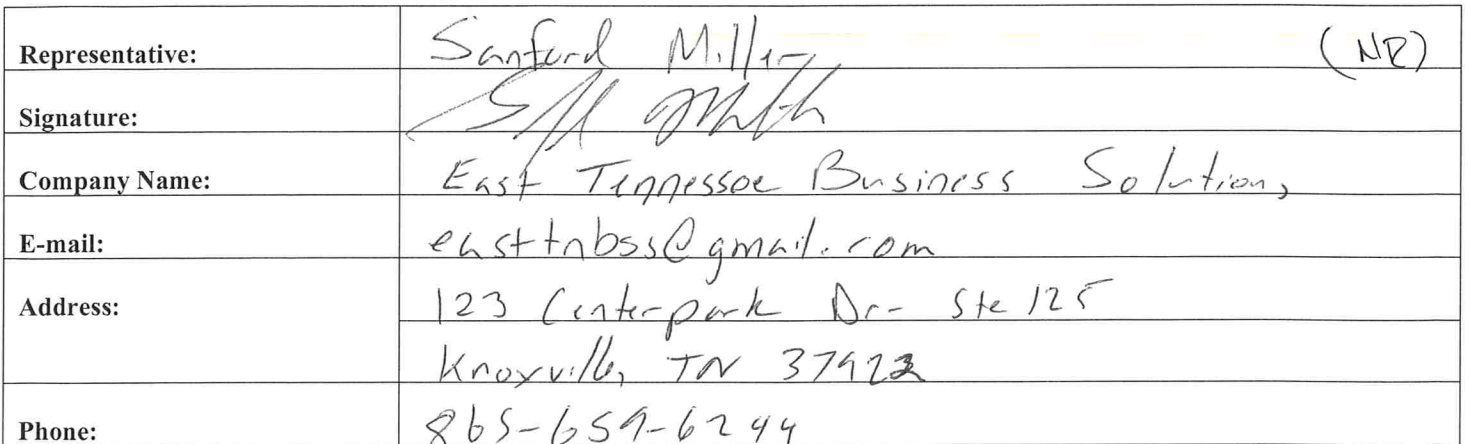 Representative: Sanford Miller (NR)
Signature:
Company Name: East Tennessee Business Solutions
E-mail: easttnbss@gmail.com
Address: 123 Centerpark Dr- Ste 125
Knoxville, TN 37922
Phone: 865-659-6244